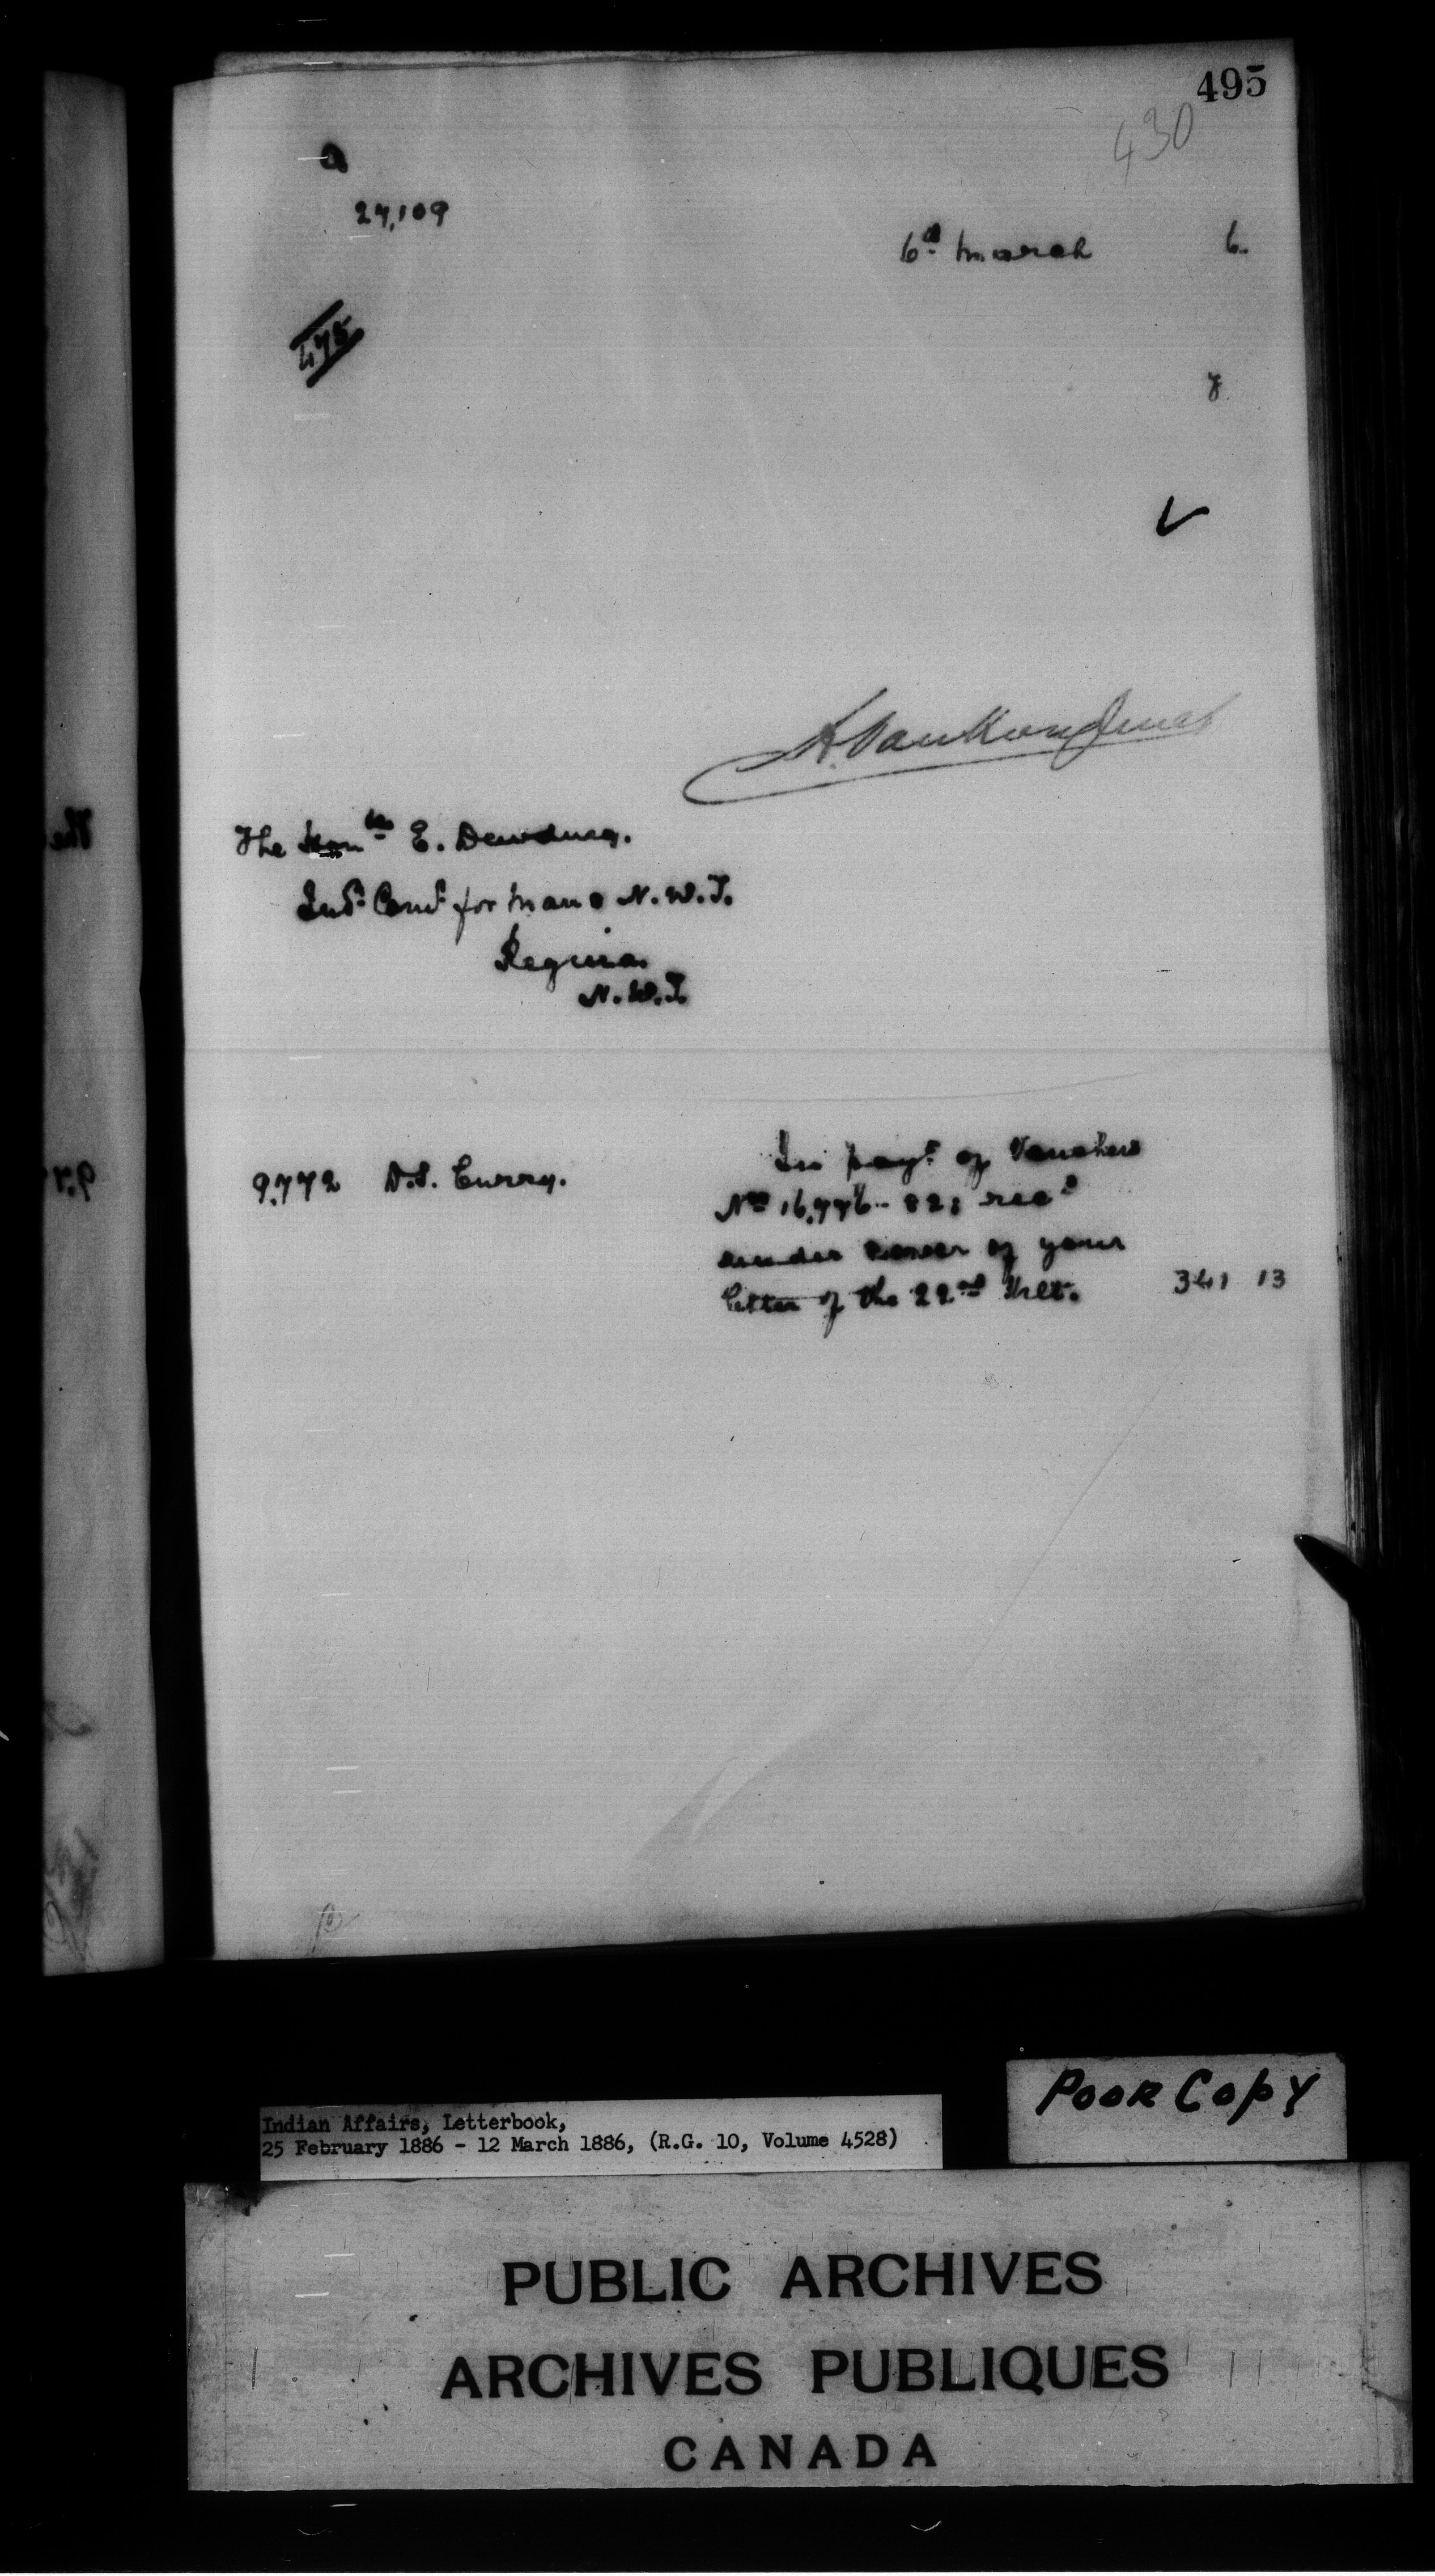 495
430
a
27,109
6th March 6.
475
y
A. VanKoughnet
The Honble E. Dewdney.
Indn Comr for Man & N.W.T.
Regina.
N.W.T.
9.772 D.S. Curry.
In payt of Vouchers
Nos 16,776 - 828 recd
under cover of your
letter of the 22nd Ult. 341 13
Poor Copy
Indian Affairs, Letterbook,
25 February 1886 - 12 March 1886, (R.G. 10, Volume 4528)
PUBLIC ARCHIVES
ARCHIVES PUBLIQUES
CANADA